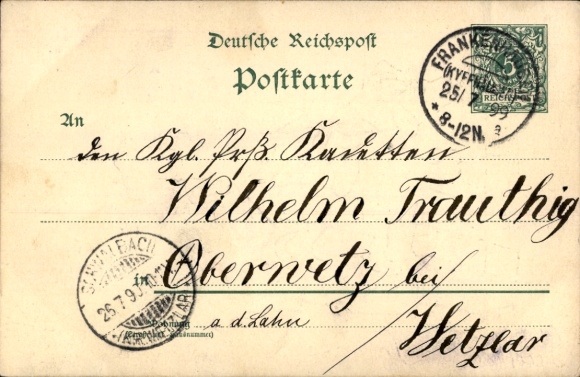 Deutsche Reichspost
Postkarte
5
REICHSPOST
FRANKENHAUSEN
(KYFFHÄUSER)
25/7 99
8-12N.
a
An
den Kgl. Prß. Kadetten
Wilhelm Trauthig
in Oberwetz bei
Wetzlar
a. d. Lahn
Wohnung
(Straße und Hausnummer)
SCHWALBACH
26.7.99
(KR. WETZLAR)